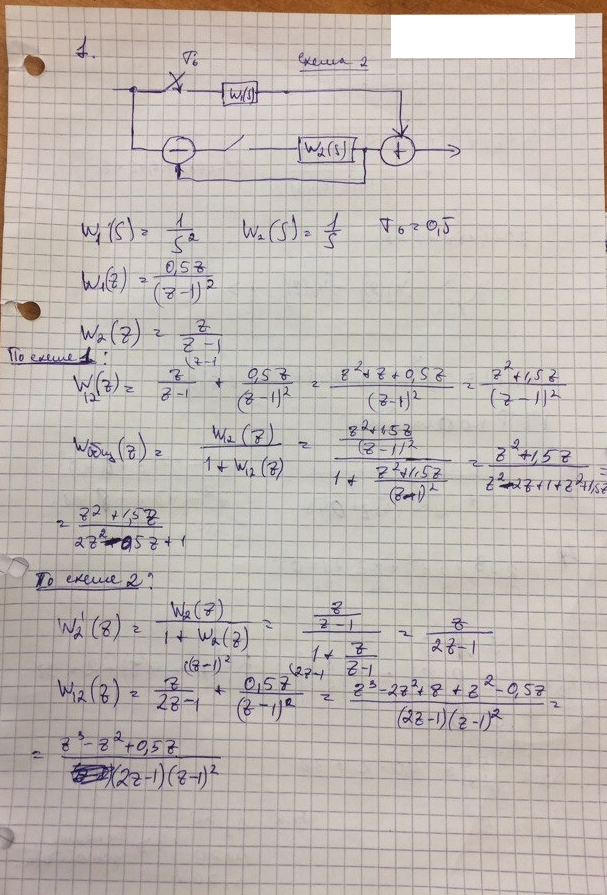 1.
T₀ Схема 2
W₁(S)
− W₂(S) +
W₁(S) = 1/S² W₂(S) = 1/S T₀ = 0,5
W₁(z) = 0,5z/(z-1)²
W₂(z) = z/(z-1)
По схеме 1:
(z-1
W₁₂(z) = z/(z-1) + 0,5z/(z-1)² = (z²+z+0,5z)/(z-1)² = (z²+1,5z)/(z-1)²
Wобщ(z) = W₁₂(z)/(1+W₁₂(z)) = ((z²+1,5z)/(z-1)²)/(1+(z²+1,5z)/(z-1)²) = (z²+1,5z)/(z²-2z+1+z²+1,5z) =
= (z²+1,5z)/(2z²-0,5z+1)
По схеме 2:
W₂'(z) = W₂(z)/(1+W₂(z)) = (z/(z-1))/(1+z/(z-1)) = z/(2z-1)
(z-1)² (2z-1
W₁₂(z) = z/(2z-1) + 0,5z/(z-1)² = (z³-2z²+z+z²-0,5z)/((2z-1)(z-1)²) =
= (z³-z²+0,5z)/((2z-1)(z-1)²)